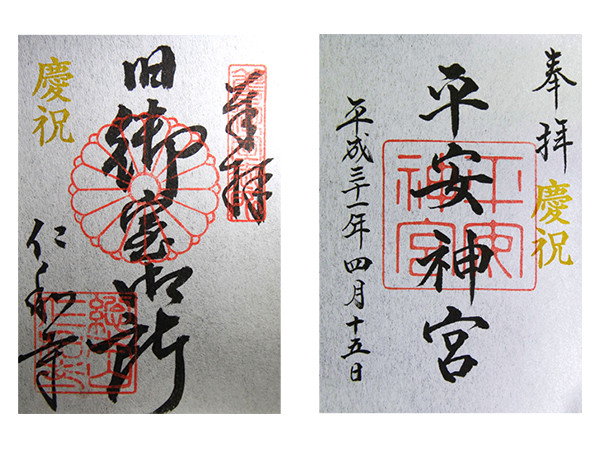 慶祝
奉拝
旧御室御所
仁和寺
奉拝
慶祝
平安神宮
平安神宮
平成三十一年四月十五日